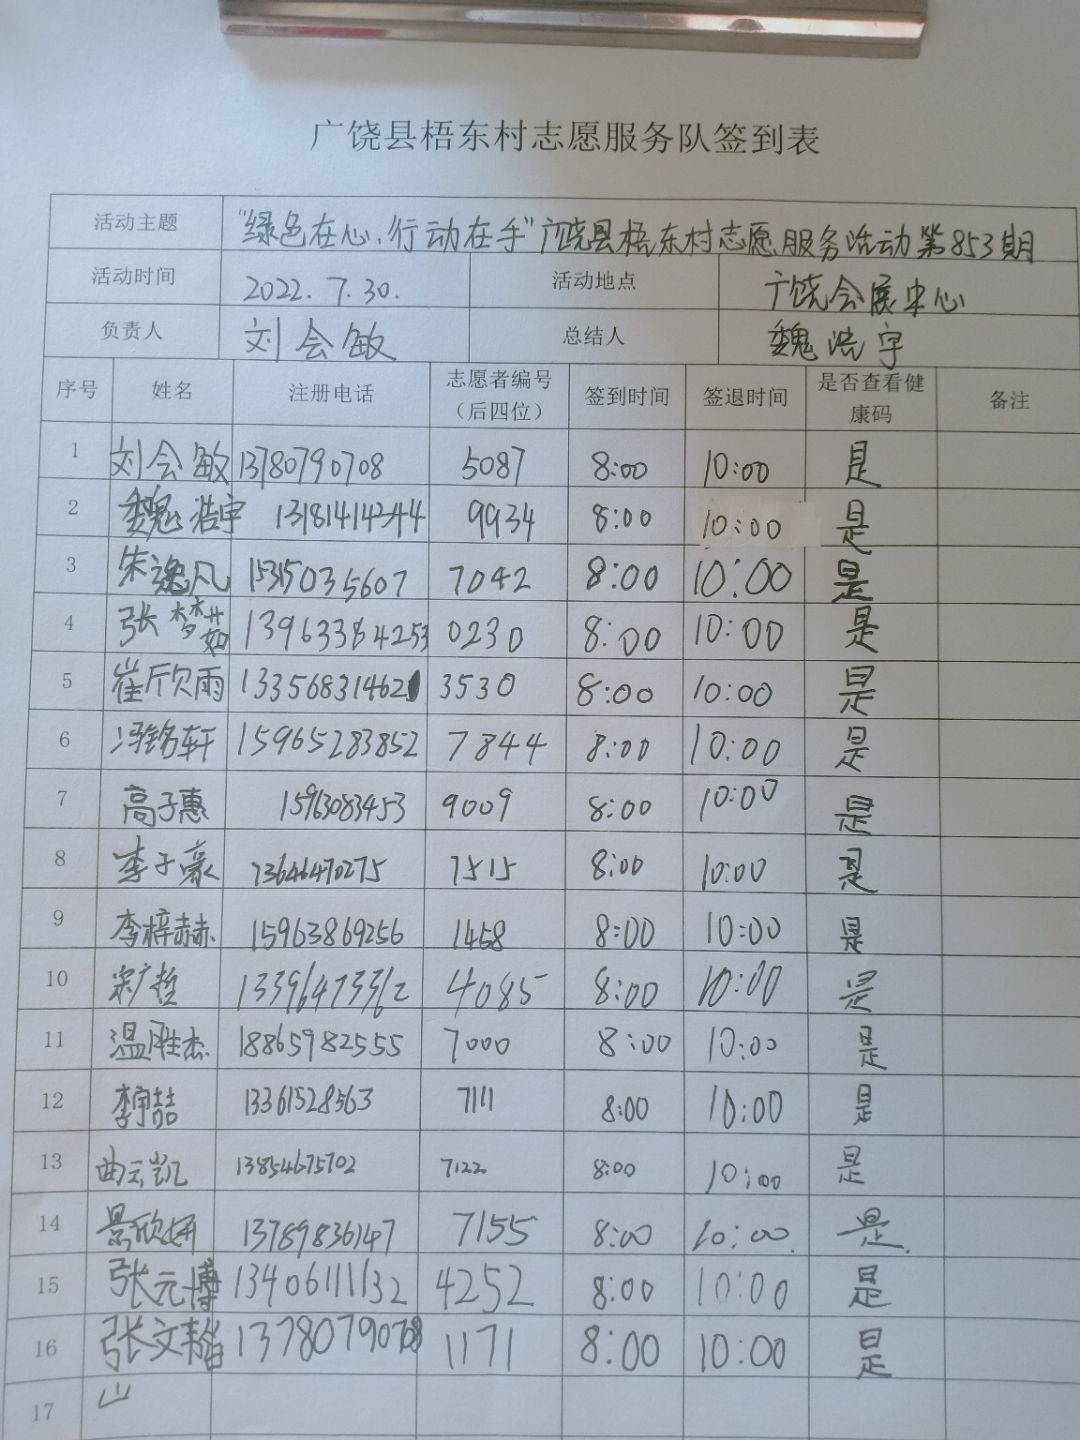 广饶县梧东村志愿服务队签到表
活动主题 "绿色在心、行动在手"广饶县梧东村志愿服务活动第853期
活动时间 2022.7.30. 活动地点 广饶会展中心
负责人 刘会敏 总结人 魏浩宇
序号 姓名 注册电话 志愿者编号（后四位） 签到时间 签退时间 是否查看健康码 备注
1 刘会敏 13780790708 5087 8:00 10:00 是
2 魏浩宇 9934 8:00 10:00 是
3 朱逸凡 15315035607 7042 8:00 10:00 是
4 张梦茹 13963384253 0230 8:00 10:00 是
5 崔欣雨 13356831462 3530 8:00 10:00 是
6 冯铭轩 15965283852 7844 8:00 10:00 是
7 高子惠 15963083453 9009 8:00 10:00 是
8 李子豪 13646470275 7515 8:00 10:00 是
9 李梓赫 15963869256 1458 8:00 10:00 是
10 宋广哲 4085 8:00 10:00 是
11 温胜杰 18865982555 7000 8:00 10:00 是
12 李宇喆 13361528563 7111 8:00 10:00 是
13 曲云凯 13854675702 7122 8:00 10:00 是
14 景欣妍 13789836147 7155 8:00 10:00. 是.
15 张元博 13406111132 4252 8:00 10:00 是
16 张文韬 13780790708 1171 8:00 10:00 是
17